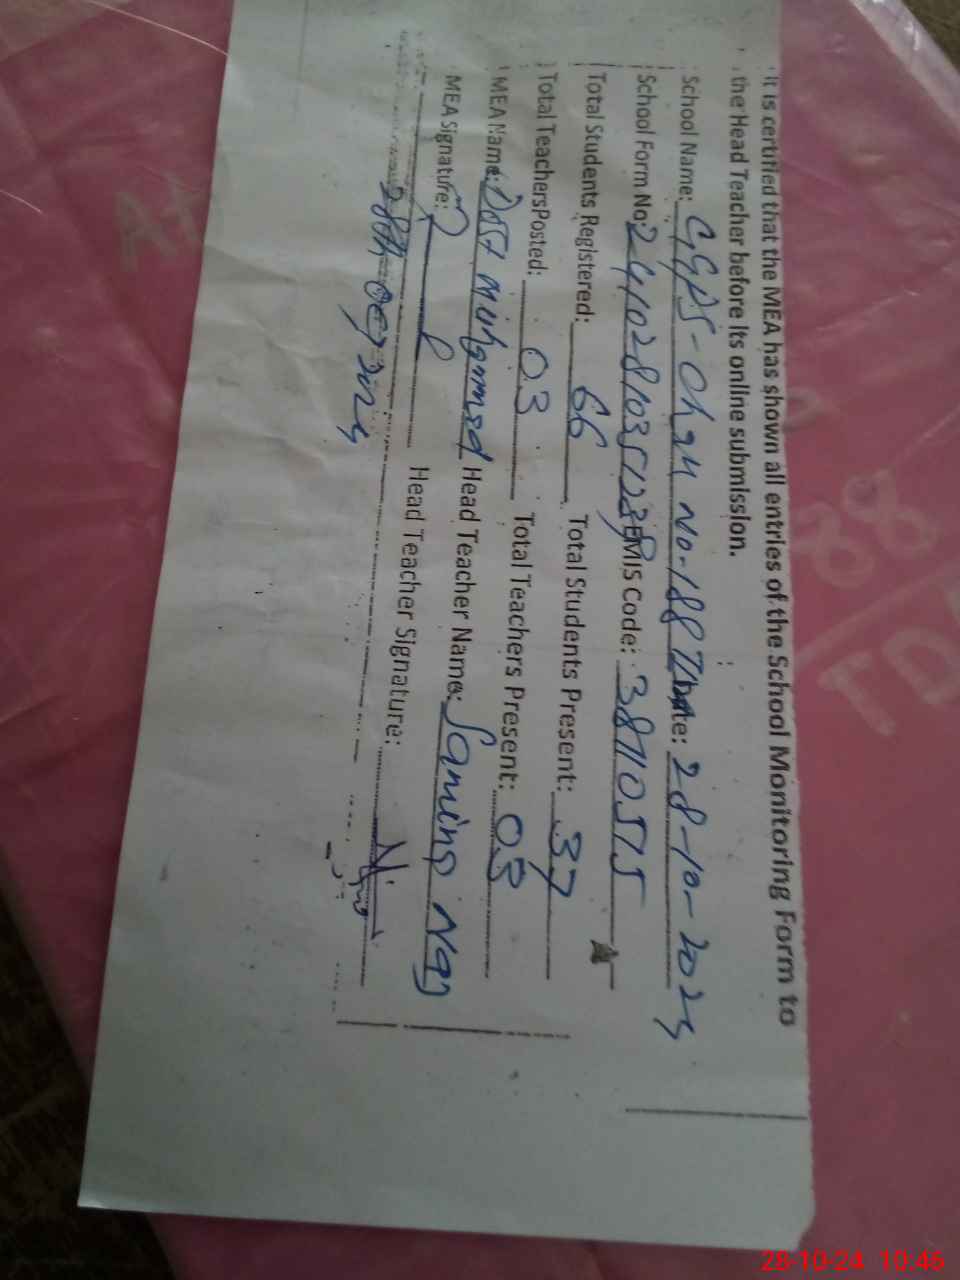 It is certified that the MEA has shown all entries of the School Monitoring Form to
the Head Teacher before its online submission.
School Name: GGPS-Chah No-188 Date: 28-10-2024
School Form No: EMIS Code: 38110515
Total Students Registered: 66 Total Students Present: 37
Total TeachersPosted: 03 Total Teachers Present: 03
MEA Name: Dost Muhammad Head Teacher Name:
MEA Signature: Head Teacher Signature:
28th Oct 2024
28-10-24 10:46